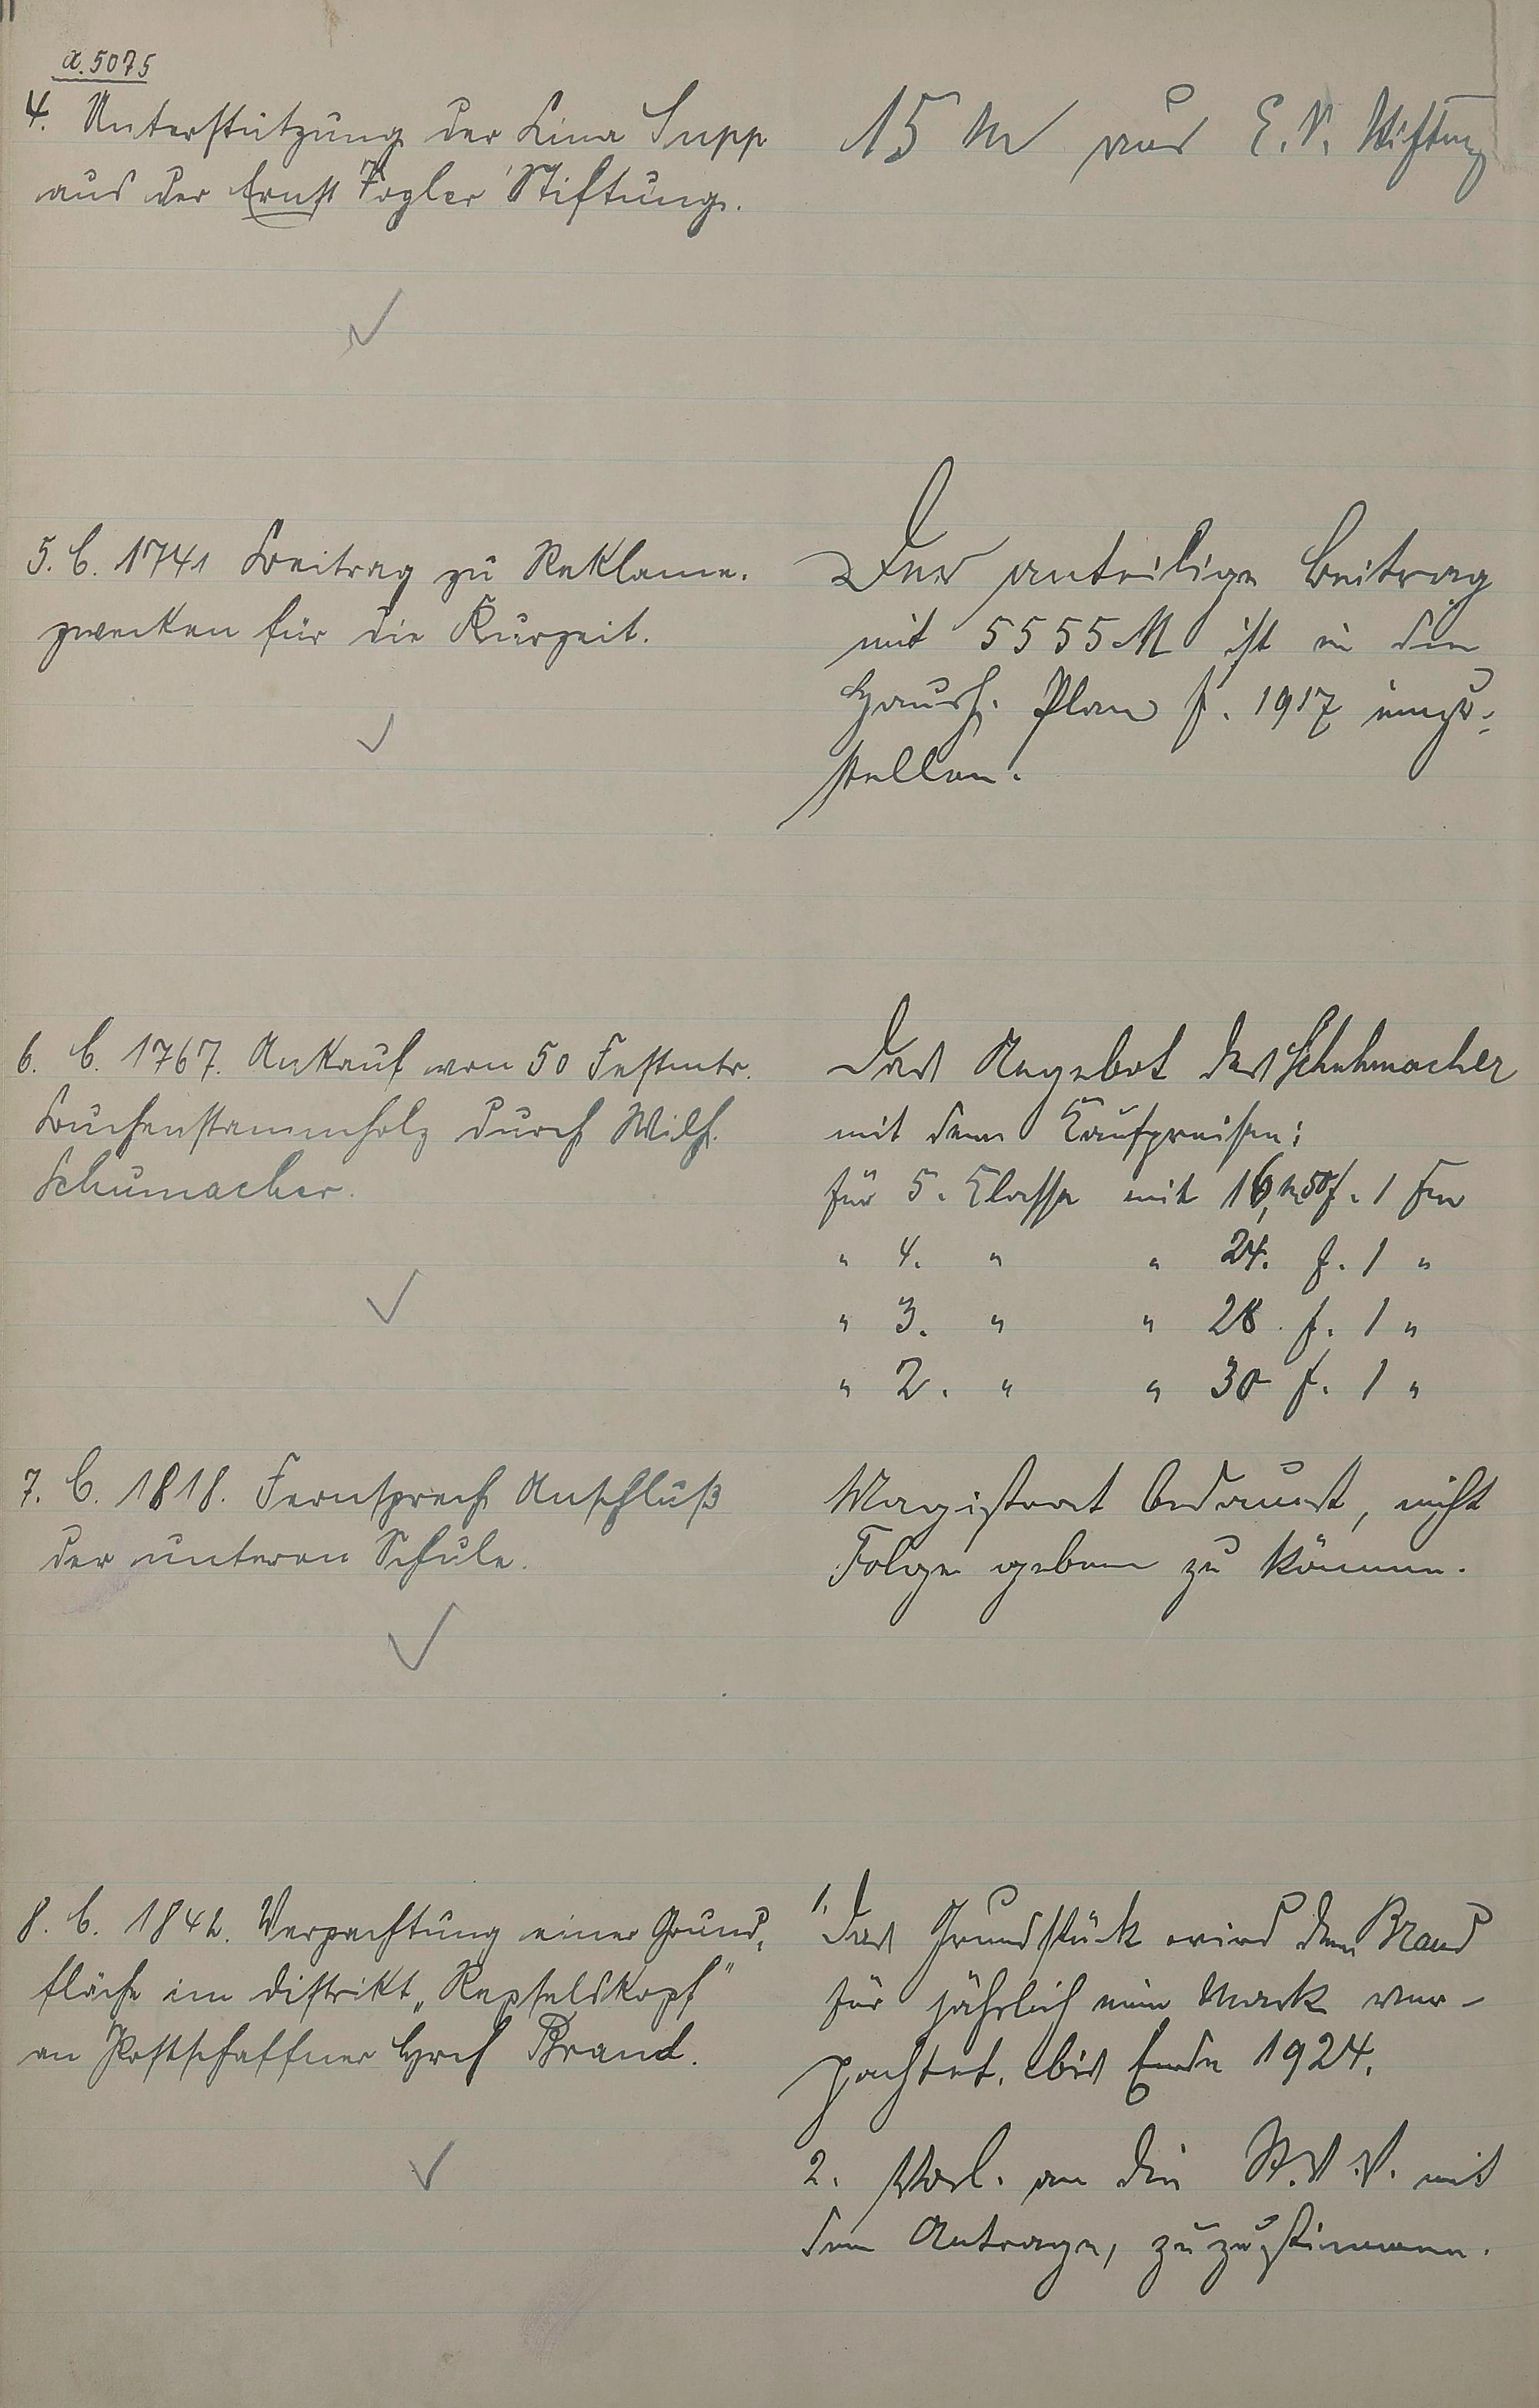 a. 5075
4. Unterstützung der Lina Supp
aus der Ernst Vogler Stiftung.
15 M aus E. V. Stiftung
5. C. 1741 Beitrag zu Reklame-
zwecken für die Kurzeit.
Der anteilige Beitrag
mit 5555 M ist in den
Haush. Plan f. 1917 einzu-
stellen.
6. C. 1767. Ankauf von 50 Festmtr.
Buchenstammholz durch Wilh.
Schumacher.
Das Angebot des Schuhmacher
mit den Kaufpreisen:
für 5. Classe mit 16,50 f. 1 Fm
" 4. " " 24. f. 1 "
" 3. " " 28. f. 1 "
" 2. " " 30 f. 1 "
7. C. 1818. Fernsprech Anschluß
der unteren Schule.
Magistrat bedauert, nicht
Folge geben zu können.
8. C. 1842. Verpachtung einer Grund-
fläche im Distrikt
an Postschaffner Brand.
1. Das Grundstück wird dem Brand
für jährlich eine Mark ver-
pachtet. bis Ende 1924.
2. Vorl. an die St. V. V. mit
dem Antrage, zuzustimmen.